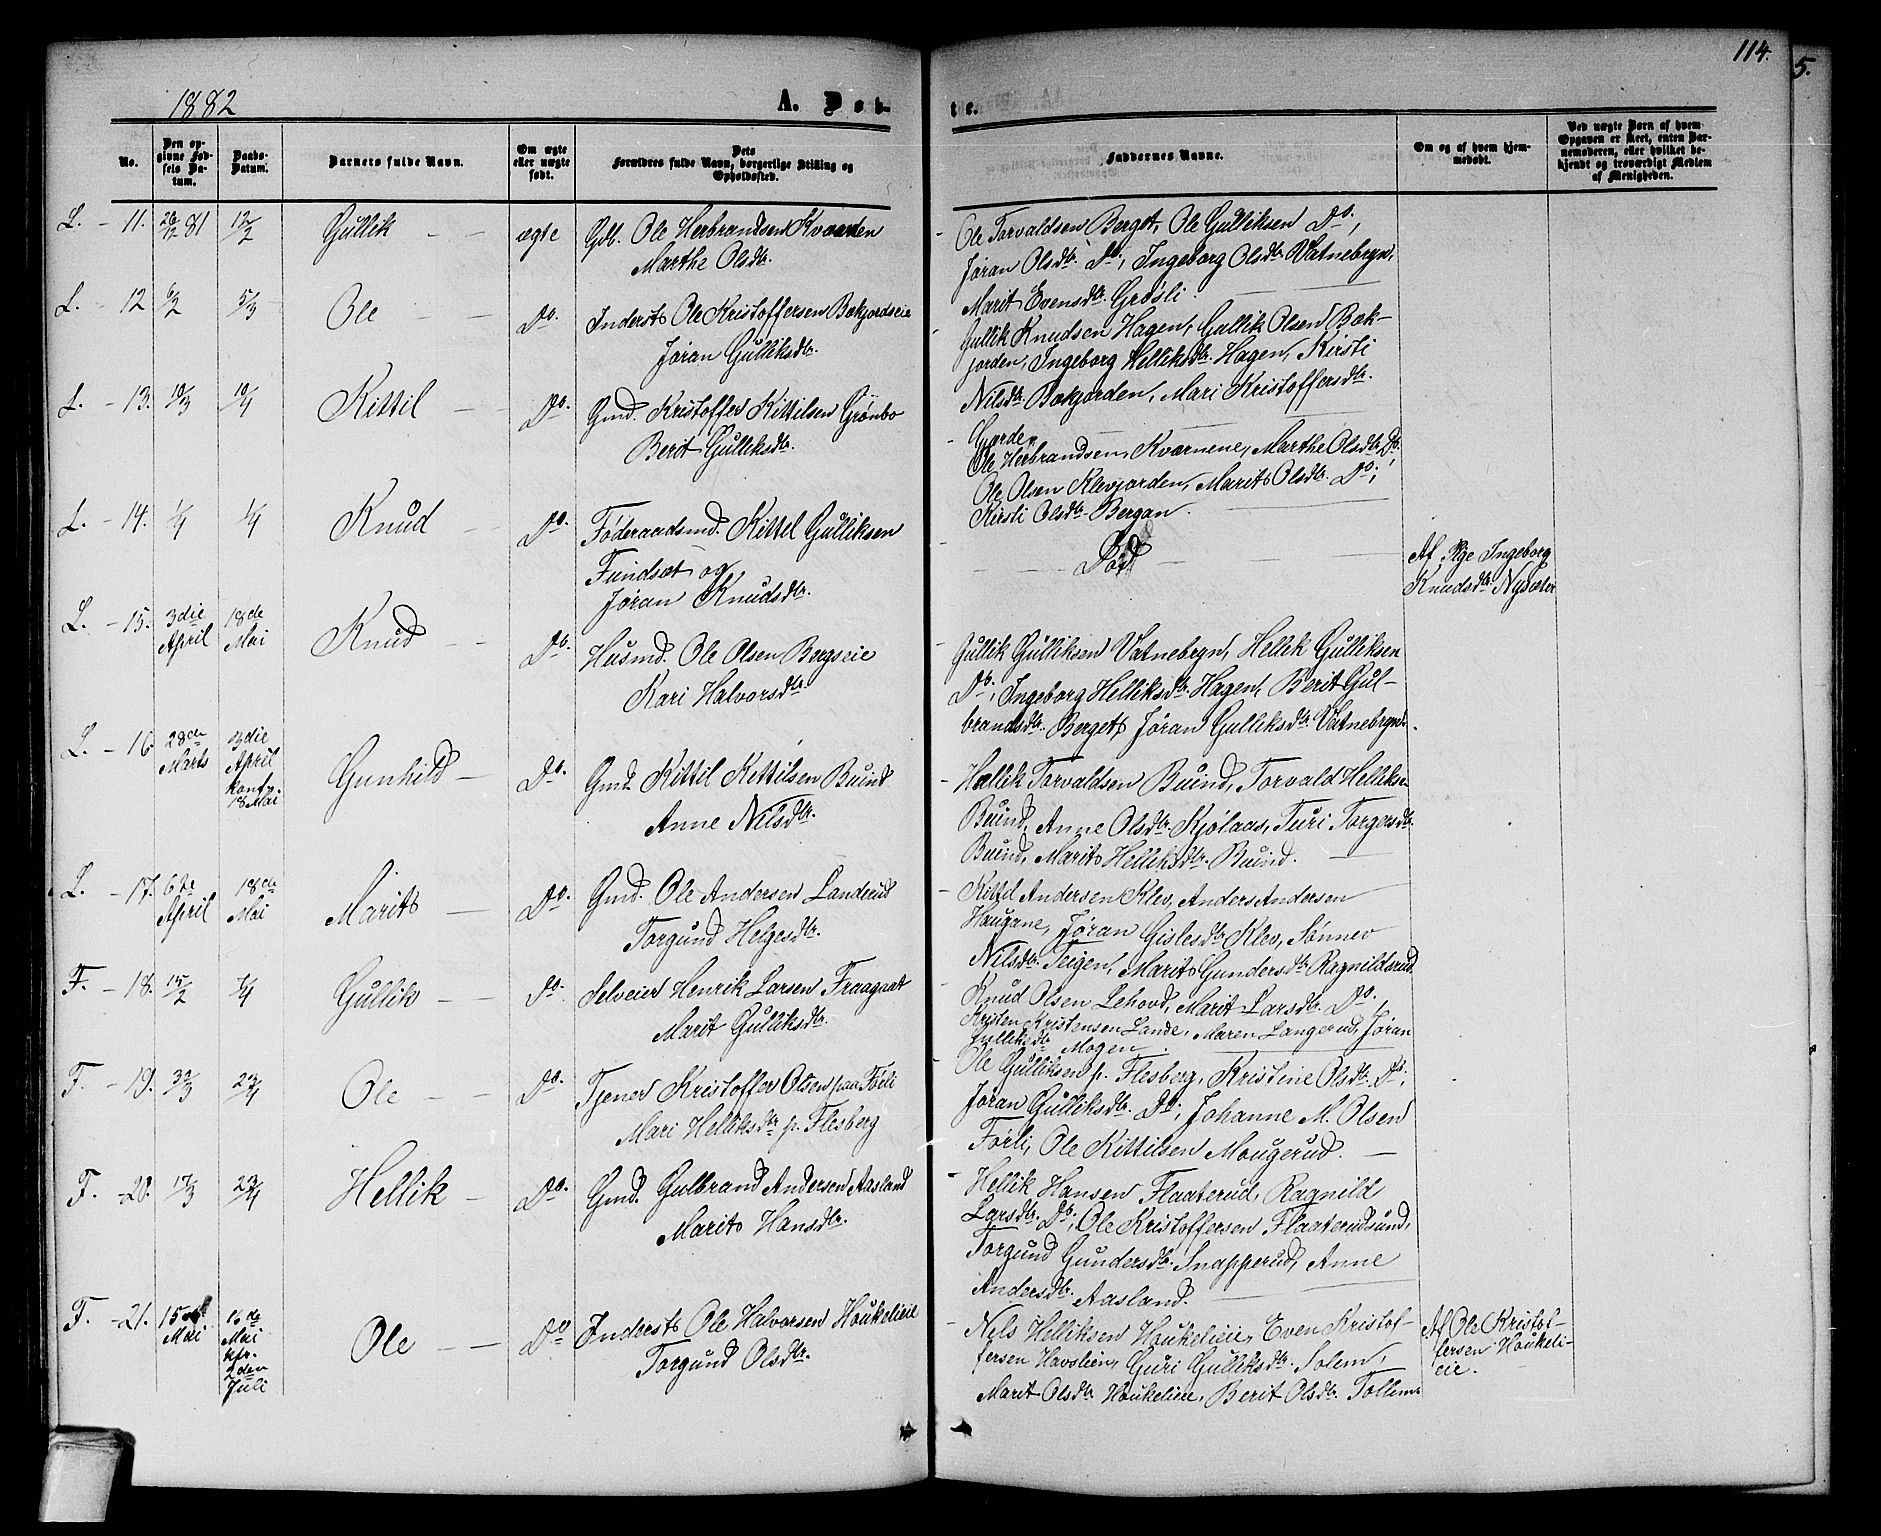 1882
A. Døb-
te.
114.
5.
No.
Den opgivne Fødsels Datum.
Daabs-Datum.
Barnets fulde Navn.
Om ægte eller uægte født.
Dets Forældres fulde Navn, borgerlige Stilling og Opholdssted.
Faddernes Navne.
Om og af hvem hjemmedøbt.
Ved uægte Børn af hvem Opgaven er skeet, enten Barnemoderen, eller hvilket bekjendt og troværdigt Medlem af Menigheden.
L. - 11. 26/12 81 12/2 Gullik ægte Gdb. Ole Herbrandsen Kværnen
Marthe Olsdtr.
Ole Torvaldsen Berget, Ole Gulliksen Do,
Jøran Olsdtr. Do, Ingeborg Olsdtr Vatnebryn,
Marit Evensdtr Grøsli.
L. - 12 6/2 5/3 Ole Do. Inderst Ole Kristoffersen Bækjordseie
Jøran Gulliksdtr.
Gullik Knudsen Hagen, Gullik Olsen Bæk-
jorden, Ingeborg Helliksdtr. Hagen, Kirsti
Nilsdtr. Bækjorden, Mari Kristoffersdtr.
Gjorden
L. - 13. 10/3 10/4 Kittil Do. Gmd. Kristoffer Kittilsen Grønbo
Berit Gulliksdtr.
Ole Herbrandsen, Kværnene, Marthe Olsdtr. Do,
Ole Olsen Klevjorden, Marit Olsdtr. Do,
Kirsti Olsdtr. Bergan.
L. - 14. 1/4 1/4 Knud Do. Føderaadsmd. Kittel Gulliksen
Fundsæt og
Jøran Knudsdtr.
Død
Af Pige Ingeborg
Knudsdtr. Nysæter
L. - 15. 3die April 18de Mai Knud Do. Husmd. Ole Olsen Bergseie
Kari Halvorsdtr.
Gullik Gulliksen Vatnebryn, Hellik Gulliksen
Do, Ingeborg Helliksdtr. Hagen, Berit Gul-
brandsdtr. Berget, Jøran Gulliksdtr. Vatnebryn.
L. - 16 28de Marts 3die April konf. 18 Mai Gunhild Do. Gmd. Kittil Kittilsen Buind
Anne Nilsdtr.
Hellik Torvaldsen Buind, Torvald Helliksen
Buind, Anne Olsdtr. Kjølaas, Turi Torgersdtr.
Buind, Marit Helliksdtr. Buind.
L. - 17. 6te April 18de Mai Marit Do. Gmd. Ole Andersen Landerud
Torgund Helgesdtr.
Kittil Andersen Klev, Anders Andersen
Haugane, Jøran Gislesdtr. Klev, Sønnev
Nilsdtr. Teigen, Marit Gundersdtr. Ragnildsrud.
F. - 18. 15/2 Gullik Do. Selveier Henrik Larsen Fraagaat
Marit Gulliksdtr.
Knud Olsen Lehovd, Marit Larsdtr. Do,
Kristen Kristensen Lande, Maren Langerud, Jøran
Gulliksdtr Mogen.
F. - 19. 23/4 Ole Do. Tjener Kristoffer Olsen paa Førli
Mari Helliksdtr p. Flesberg
Ole Gulliksen p. Flesberg, Kristine Olsdtr. Do,
Jøran Gulliksdtr. Do, Johanne M. Olsen
Førli, Ole Kittilsen Mougerud.
F. - 20. 17/3 23/4 Hellik Do. Gmd. Gulbrand Andersen Aasland
Marit Hansdtr.
Hellik Hansen Flaaterud, Ragnild
Larsdtr. Do, Ole Kristoffersen Flaaterudsund,
Torgund Gundersdtr. Snapperud, Anne
Andersdtr. Aasland.
F. - 21. 15 Mai 16de Mai kfr. 2den Juli Ole Do Inderst Ole Halvorsen Houkelieie
Torgund Olsdtr.
Nels Helliksen Houkelieie, Even Kristof-
fersen Havslien, Guri Gulliksdtr. Solem,
Marit Olsdtr Houkelieie, Berit Olsdtr. Tollems
Af Ole Kristof-
fersen Houkeli-
eie.